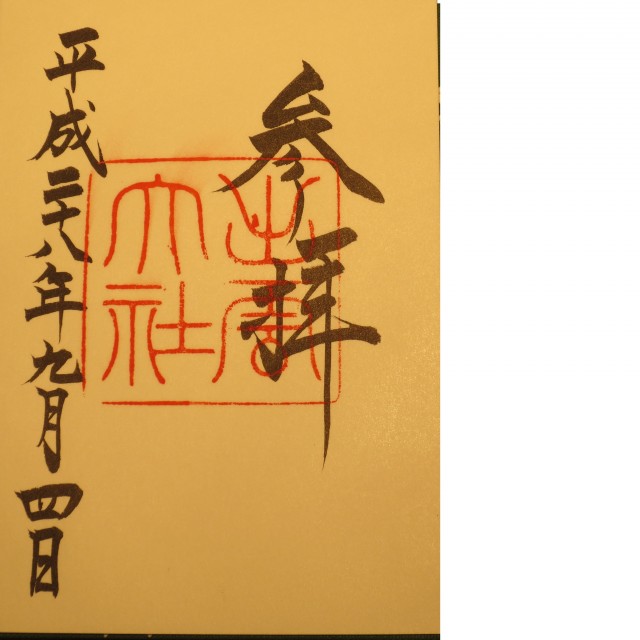 参拝
出雲大社
平成二十八年九月四日